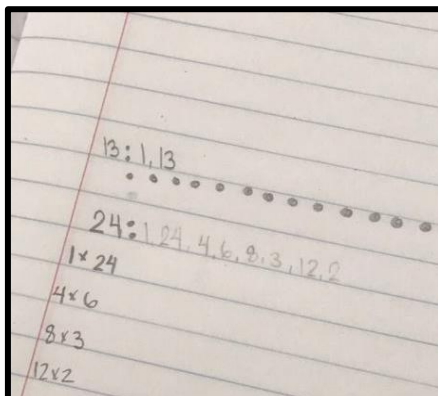 13: 1, 13
24: 1, 24, 4, 6, 8, 3, 12, 2
1 x 24
4 x 6
8 x 3
12 x 2